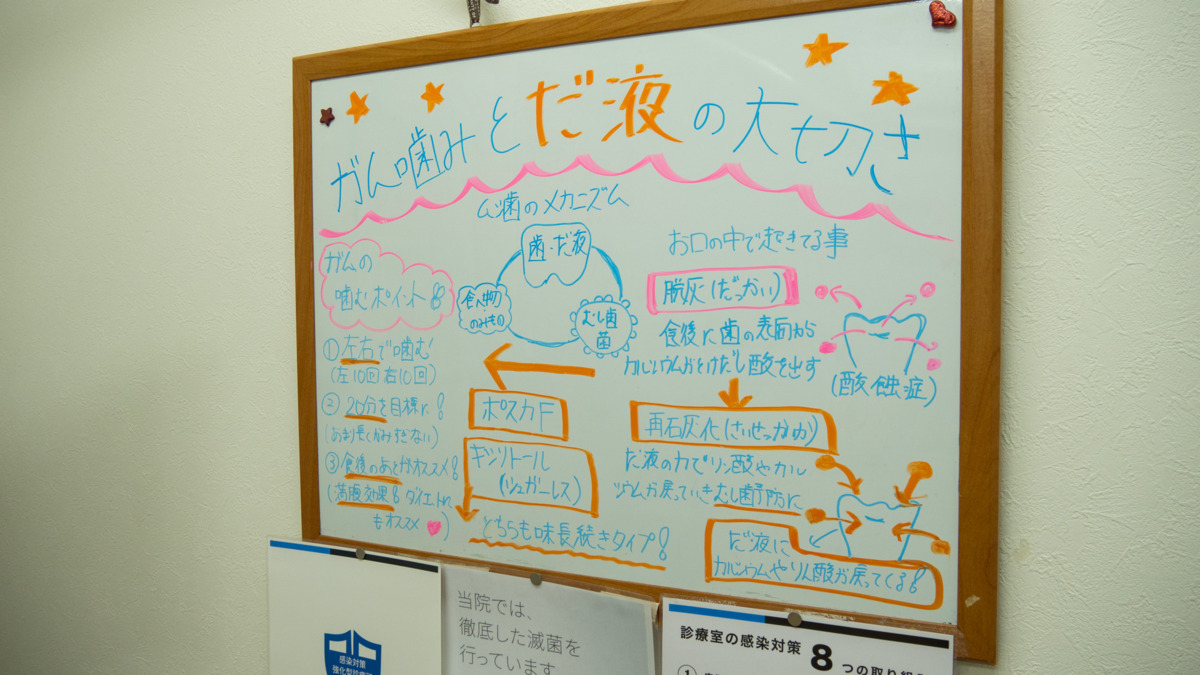 ガム噛みとだ液の大切さ
ガムの
噛むポイント
① 左右で噛む
(左10回 右10回)
② 20分を目標に!
(あまり長くかみすぎない)
③ 食後のあとがオススメ!
(満腹効果 ダイエットに
もオススメ)
ムシ歯のメカニズム
歯・だ液
食べ物
のみもの
むし歯
菌
ポスカF
キシリトール
(シュガーレス)
どちらも味長続きタイプ!
お口の中で起きてる事
脱灰(だっかい)
食後に歯の表面から
カルシウムがとけだし酸を出す
(酸蝕症)
再石灰化(さいせっかいか)
だ液の力でリン酸やカル
シウムが戻っていきむし歯予防に
だ液に
カルシウムやリン酸が戻ってくる
感染対策
当院では、
徹底した滅菌を
行っています
診療室の感染対策 8つの取り組
①